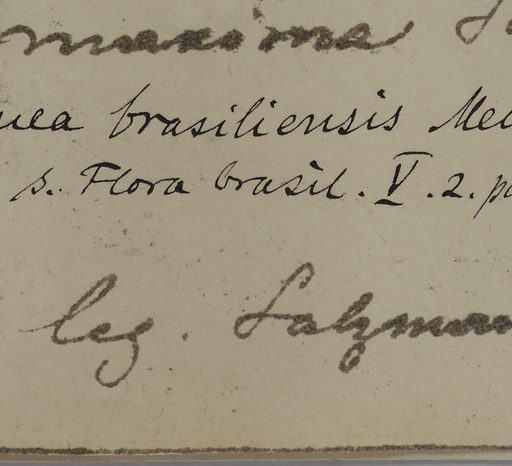 maxima
brasiliensis
s. Flora brasil. V. 2.
leg. Salzman